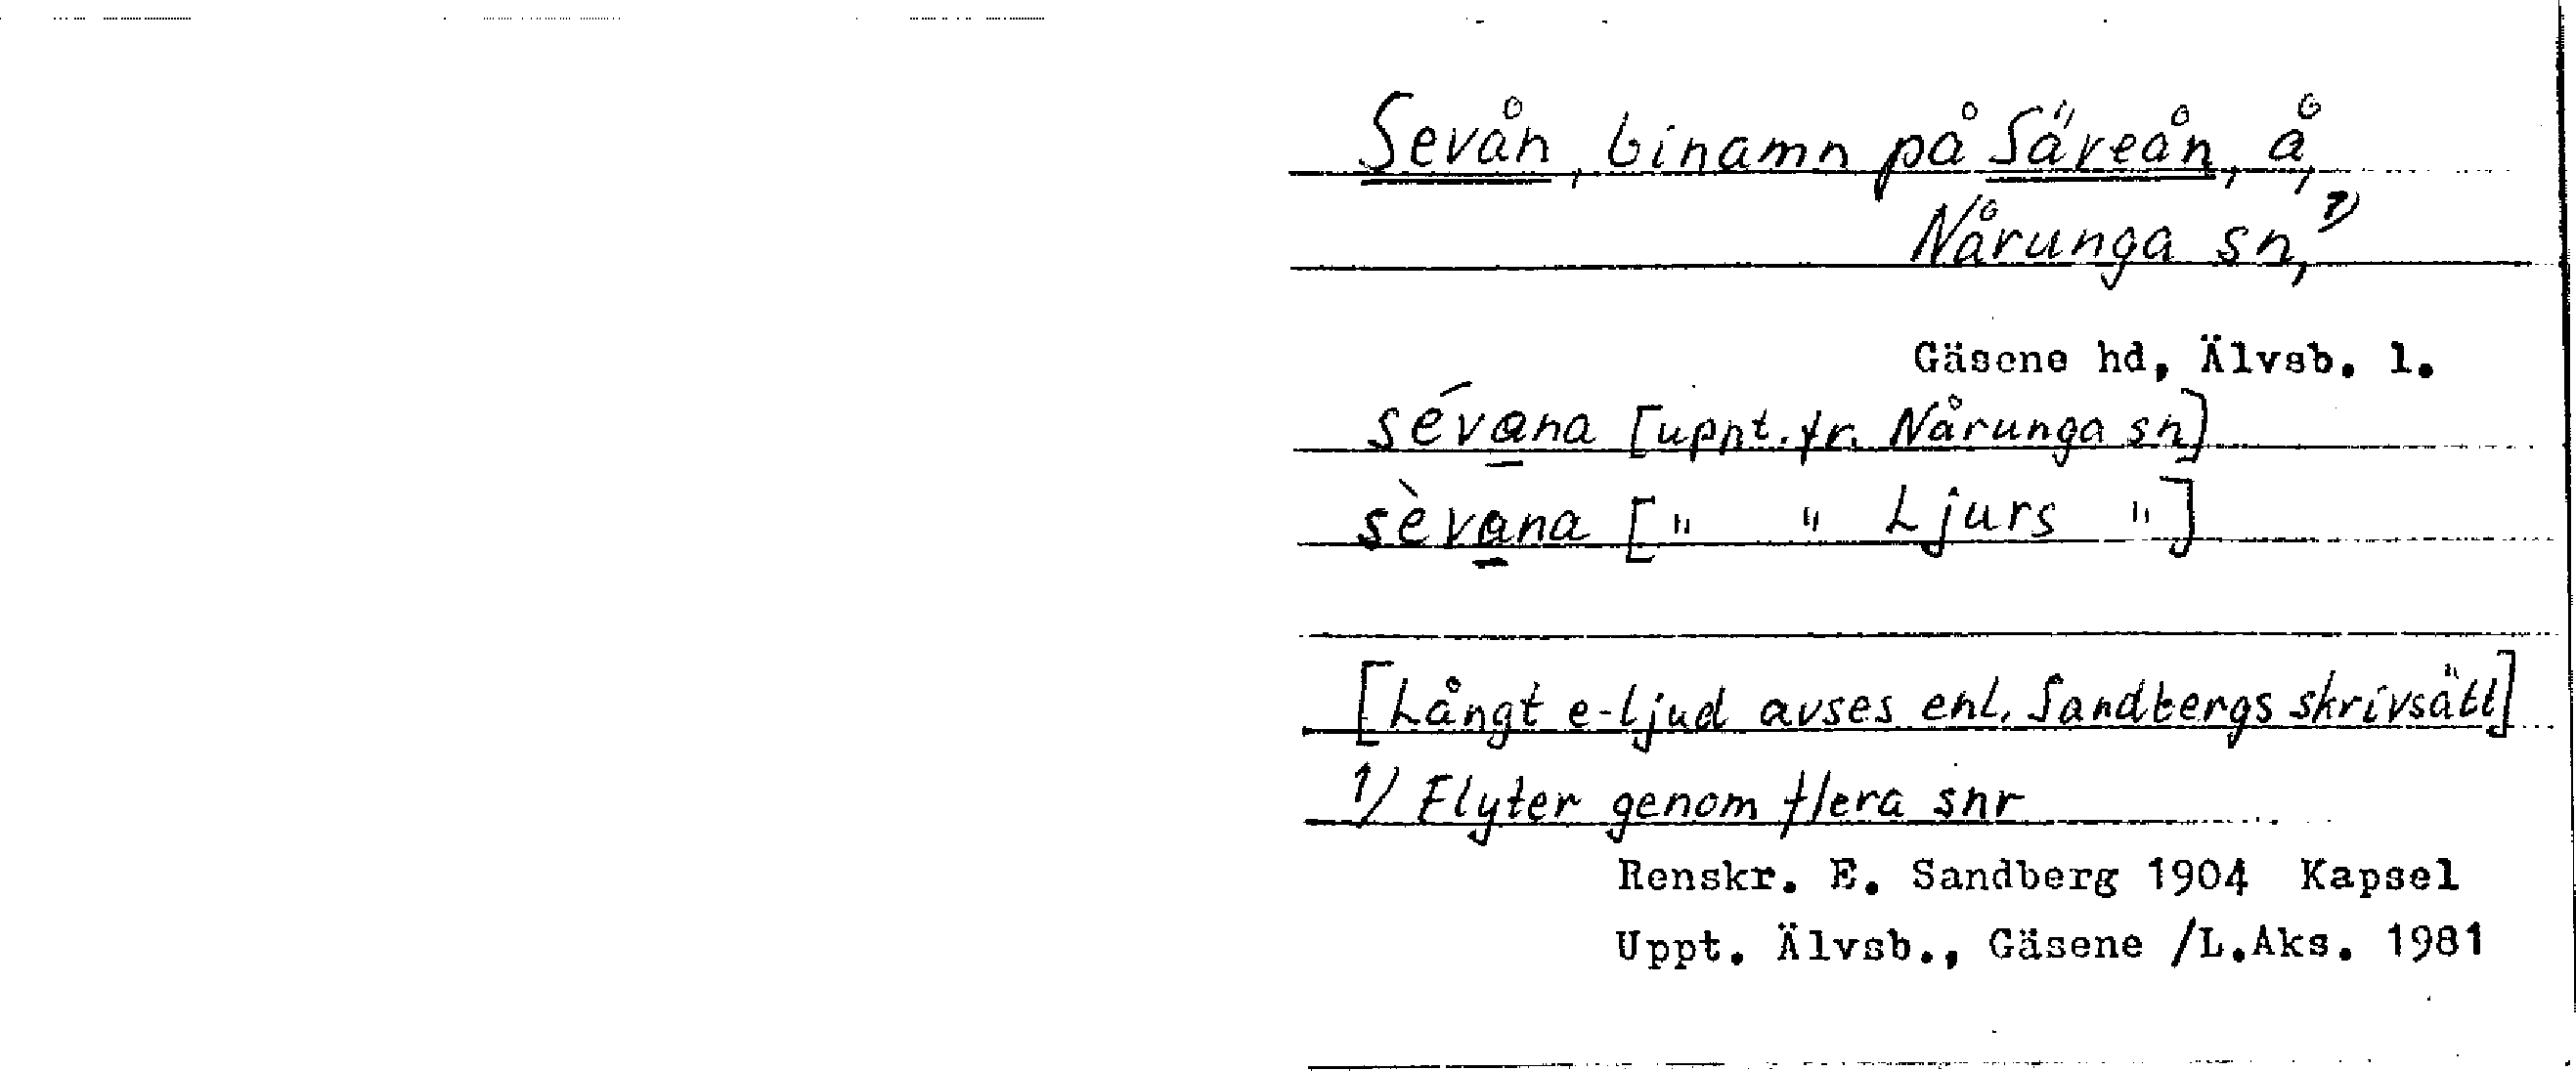 Sevån, binamn på Säveån, å,
Nårunga sn, 1)
Gäsene hd, Älvsb. l.
sévana [uppt. fr. Nårunga sn]
sèvana [" " Ljurs "]
[Långt e-ljud avses enl. Sandbergs skrivsätt]
1) Flyter genom flera snr
Renskr. E. Sandberg 1904 Kapsel
Uppt. Älvsb., Gäsene /L.Aks. 1981